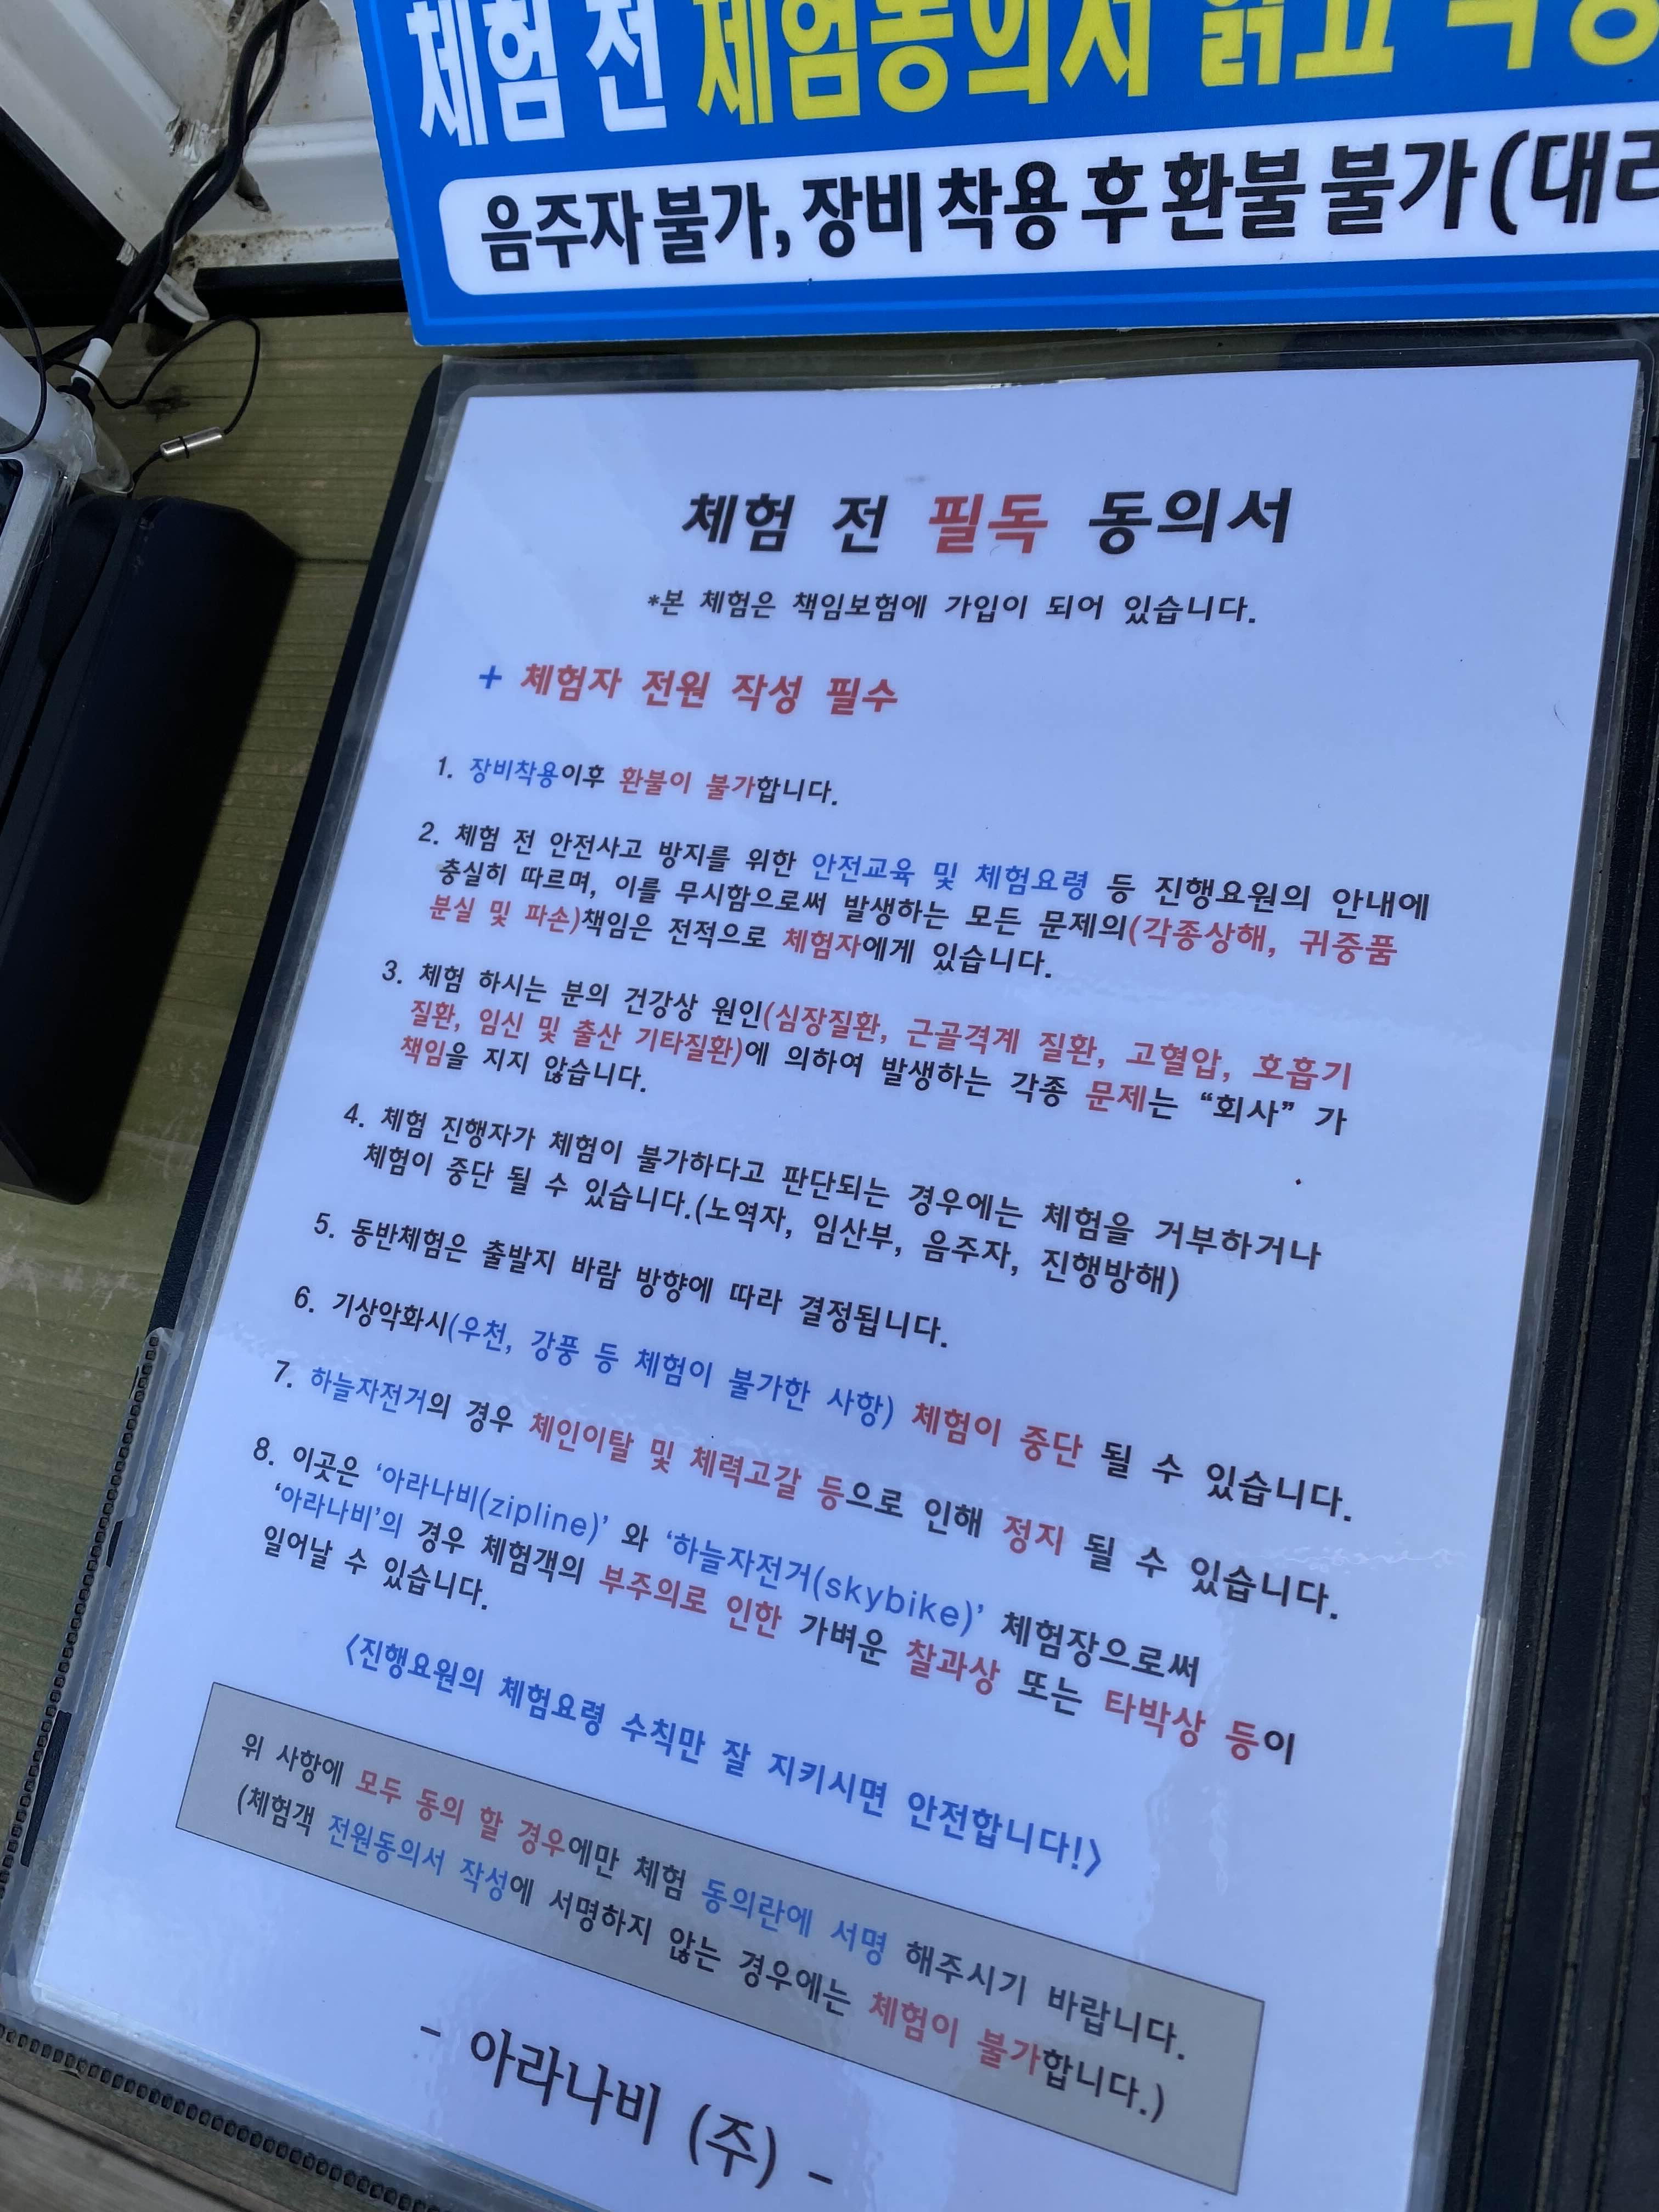 체험 전 체험동의서 읽고
음주자 불가, 장비 착용 후 환불 불가 (대리
체험 전 필독 동의서
*본 체험은 책임보험에 가입이 되어 있습니다.
+ 체험자 전원 작성 필수
1. 장비착용이후 환불이 불가합니다.
2. 체험 전 안전사고 방지를 위한 안전교육 및 체험요령 등 진행요원의 안내에
충실히 따르며, 이를 무시함으로써 발생하는 모든 문제의(각종상해, 귀중품
분실 및 파손)책임은 전적으로 체험자에게 있습니다.
3. 체험 하시는 분의 건강상 원인(심장질환, 근골격계 질환, 고혈압, 호흡기
질환, 임신 및 출산 기타질환)에 의하여 발생하는 각종 문제는 “회사” 가
책임을 지지 않습니다.
4. 체험 진행자가 체험이 불가하다고 판단되는 경우에는 체험을 거부하거나
체험이 중단 될 수 있습니다.(노역자, 임산부, 음주자, 진행방해)
5. 동반체험은 출발지 바람 방향에 따라 결정됩니다.
6. 기상악화시(우천, 강풍 등 체험이 불가한 사항) 체험이 중단 될 수 있습니다.
7. 하늘자전거의 경우 체인이탈 및 체력고갈 등으로 인해 정지 될 수 있습니다.
8. 이곳은 ‘아라나비(zipline)’ 와 ‘하늘자전거(skybike)’ 체험장으로써
‘아라나비’의 경우 체험객의 부주의로 인한 가벼운 찰과상 또는 타박상 등이
일어날 수 있습니다.
<진행요원의 체험요령 수칙만 잘 지키시면 안전합니다!>
위 사항에 모두 동의 할 경우에만 체험 동의란에 서명 해주시기 바랍니다.
(체험객 전원동의서 작성에 서명하지 않는 경우에는 체험이 불가합니다.)
- 아라나비 (주) -